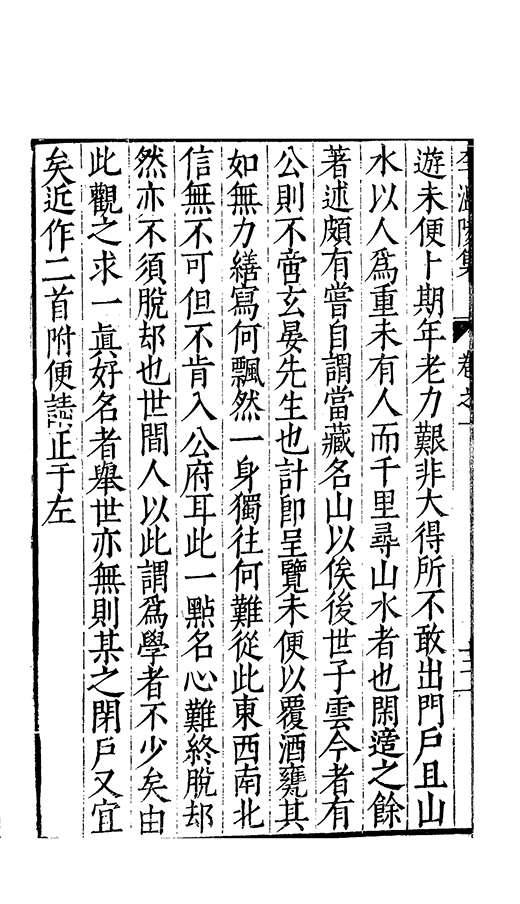 李溫陵集 卷之一
遊未便卜期年老力艱非大得所不敢出門戶且山
水以人爲重未有人而千里尋山水者也閑適之餘
著述頗有嘗自謂當藏名山以俟後世子雲今者有
公則不啻玄晏先生也計卽呈覽未便以覆酒甕其
如無力繕寫何飄然一身獨往何難從此東西南北
信無不可但不肯入公府耳此一點名心難終脫却
然亦不須脫却也世間人以此謂爲學者不少矣由
此觀之求一眞好名者舉世亦無則某之閉戶又宜
矣近作二首附便誌正于左